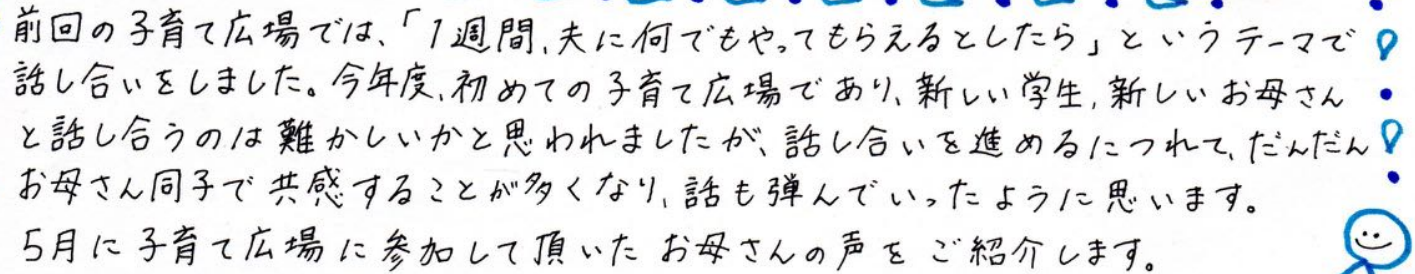 前回の子育て広場では、「1週間、夫に何でもやってもらえるとしたら」というテーマで
話し合いをしました。今年度、初めての子育て広場であり、新しい学生、新しいお母さん
と話し合うのは難かしいかと思われましたが、話し合いを進めるにつれて、だんだん
お母さん同子で共感することが多くなり、話も弾んでいったように思います。
5月に子育て広場に参加して頂いたお母さんの声をご紹介します。